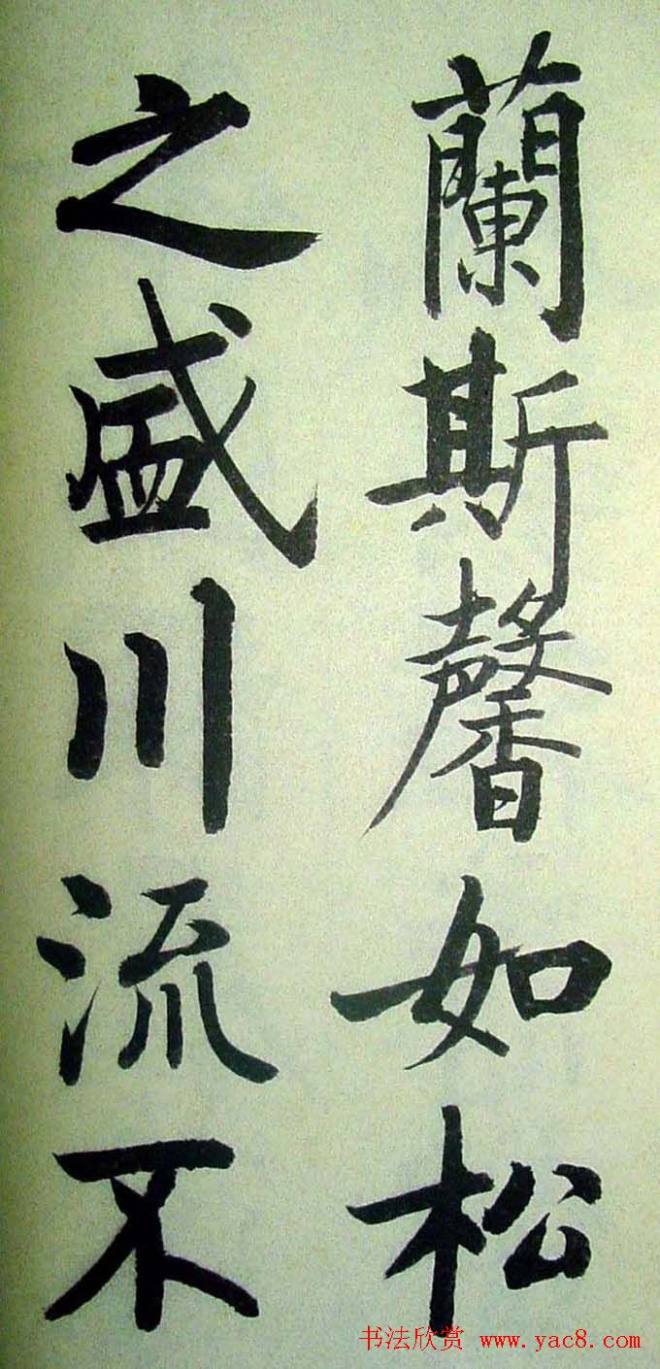 蘭斯馨如松
之盛川流不
书法欣赏 www.yac8.com